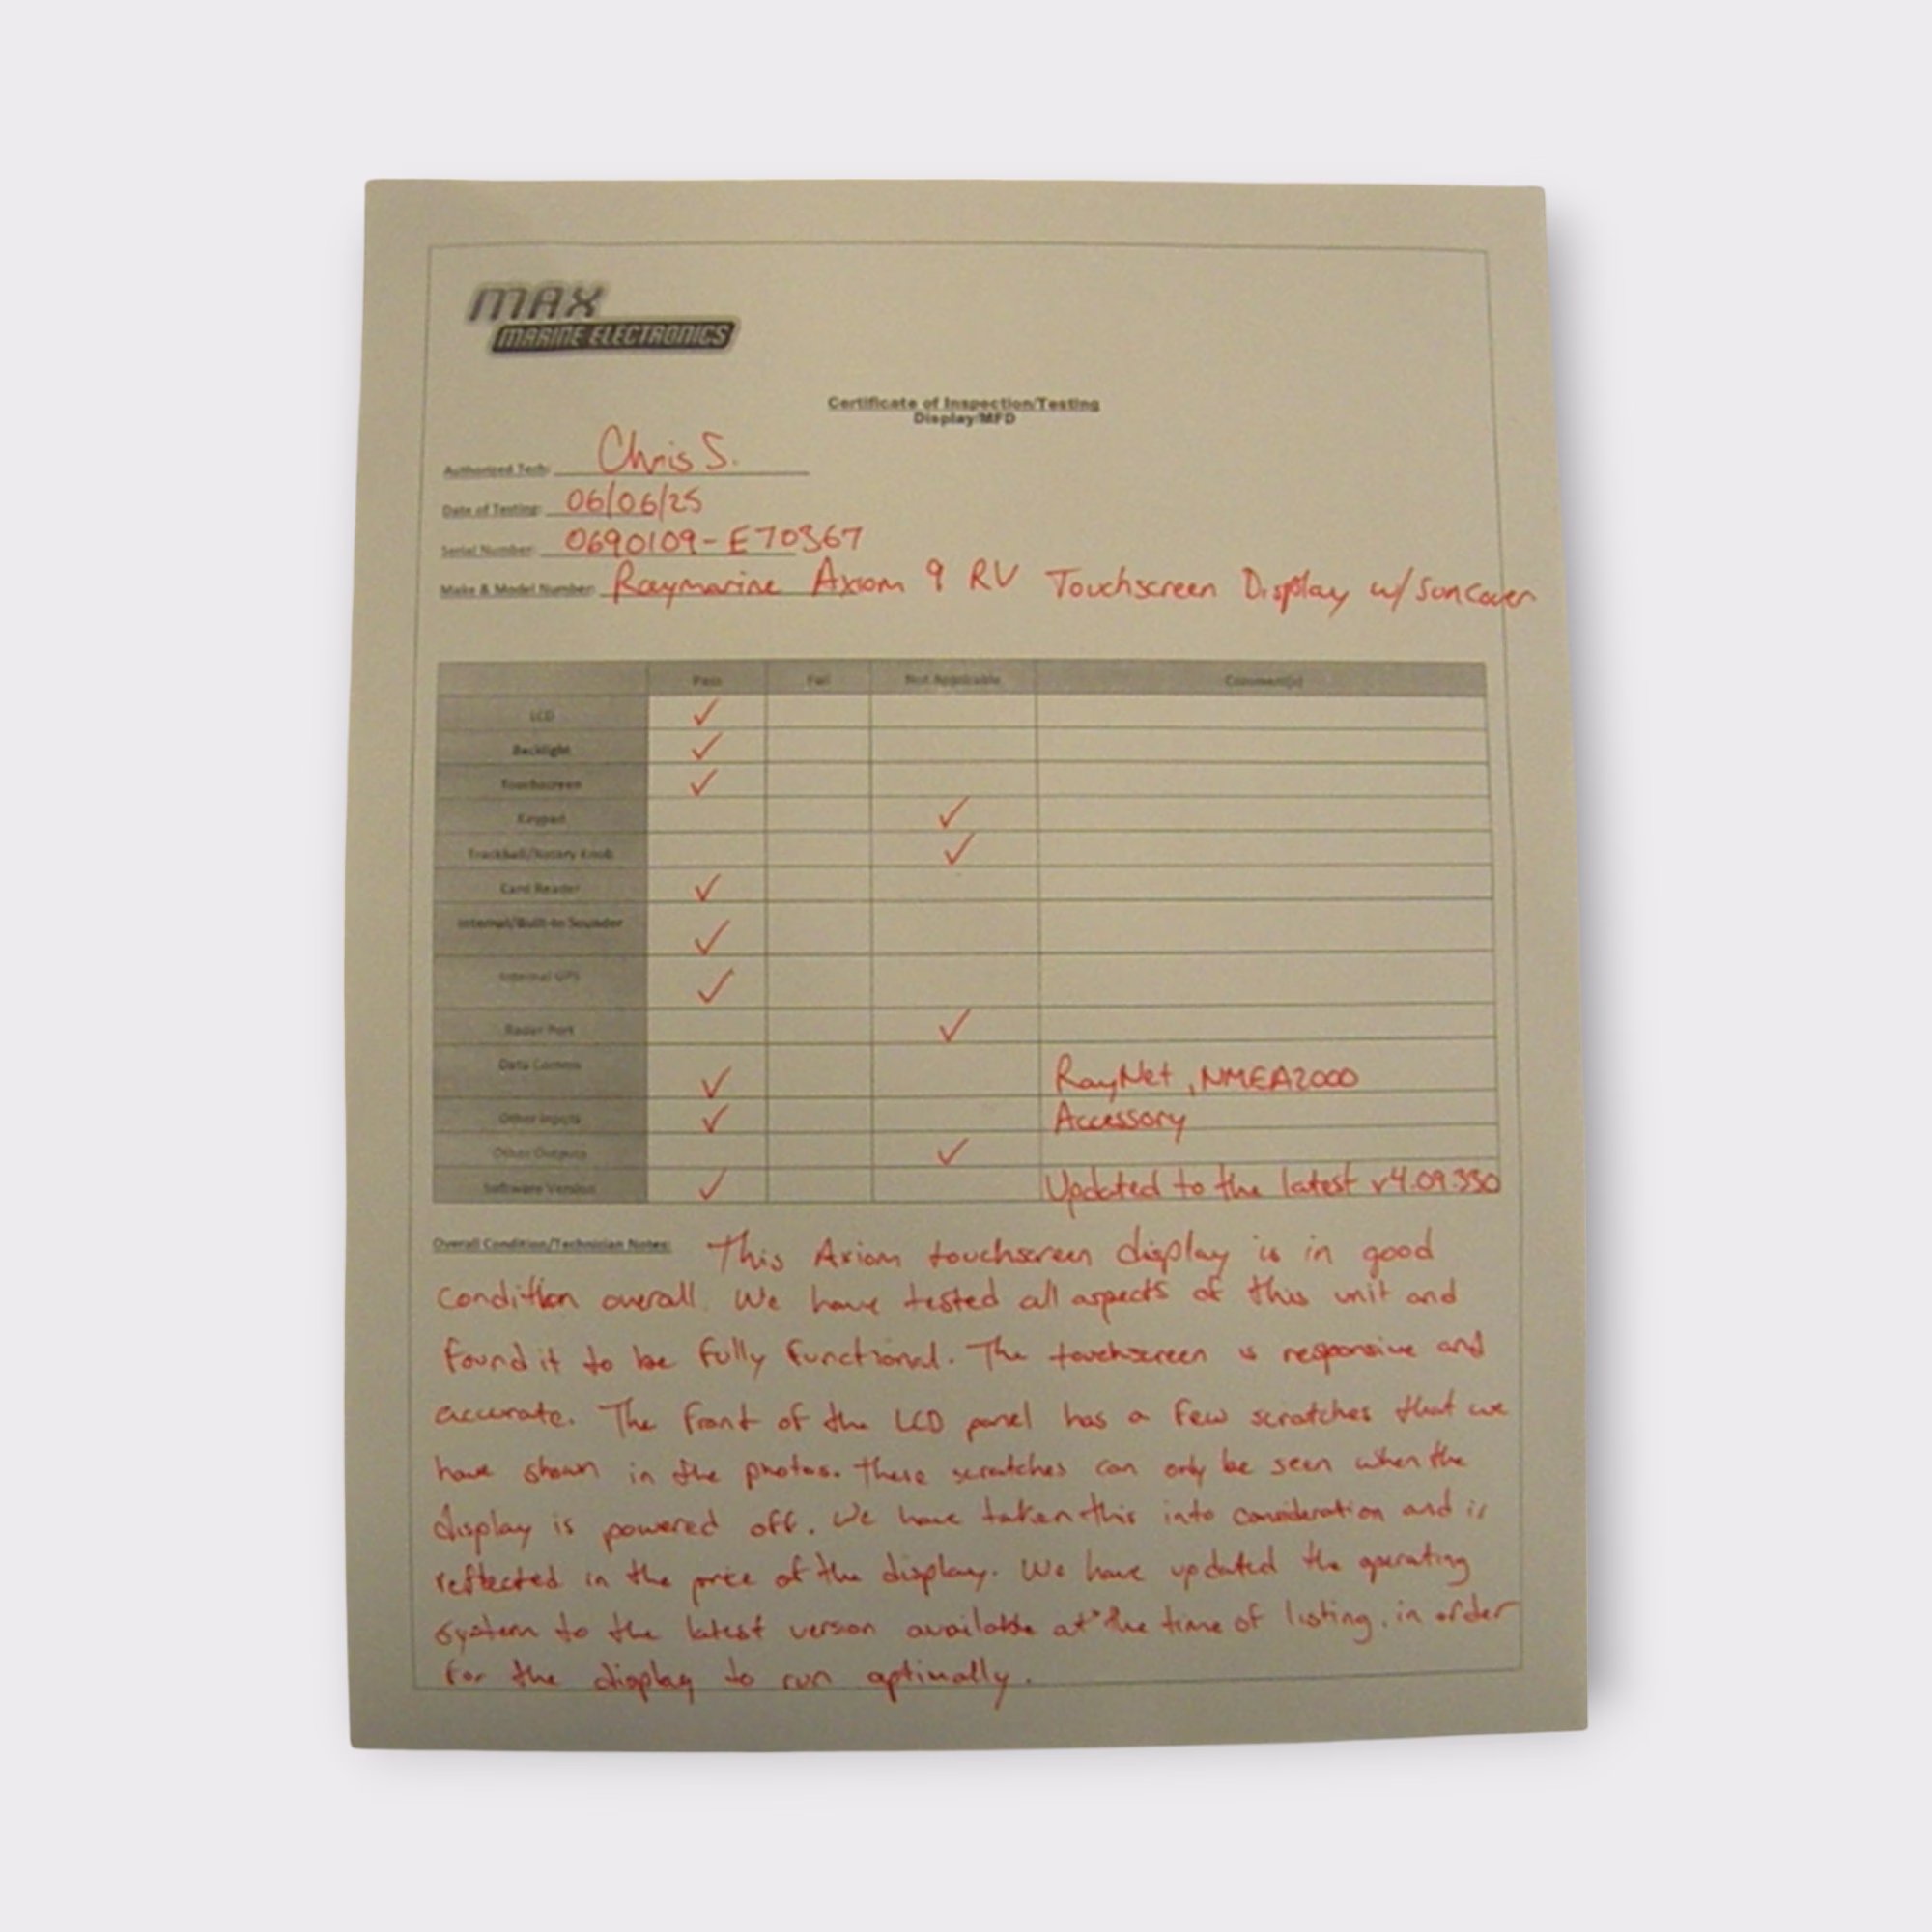 MAX
MARINE ELECTRONICS
Certificate of Inspection/Testing
Display/MFD
Authorized Tech: Chris S.
Date of Testing: 06/06/25
Serial Number: 0690109-E70367
Make & Model Number: Raymarine Axiom 9 RV Touchscreen Display w/ Suncover
Pass Fail Not Applicable Comment(s)
LCD ✓
Backlight ✓
Touchscreen ✓
Keypad ✓
Trackball/Rotary Knob ✓
Card Reader ✓
Internal/Built-In Sounder ✓
Internal GPS ✓
Radar Port ✓
Data Comms ✓ RayNet, NMEA2000
Other Inputs ✓ Accessory
Other Outputs ✓
Software Version ✓ Updated to the latest v4.09.330
Overall Condition/Technician Notes: This Axiom touchscreen display is in good
condition overall. We have tested all aspects of this unit and
found it to be fully functional. The touchscreen is responsive and
accurate. The front of the LCD panel has a few scratches that we
have shown in the photos. These scratches can only be seen when the
display is powered off. We have taken this into consideration and is
reflected in the price of the display. We have updated the operating
system to the latest version available at the time of listing. in order
for the display to run optimally.